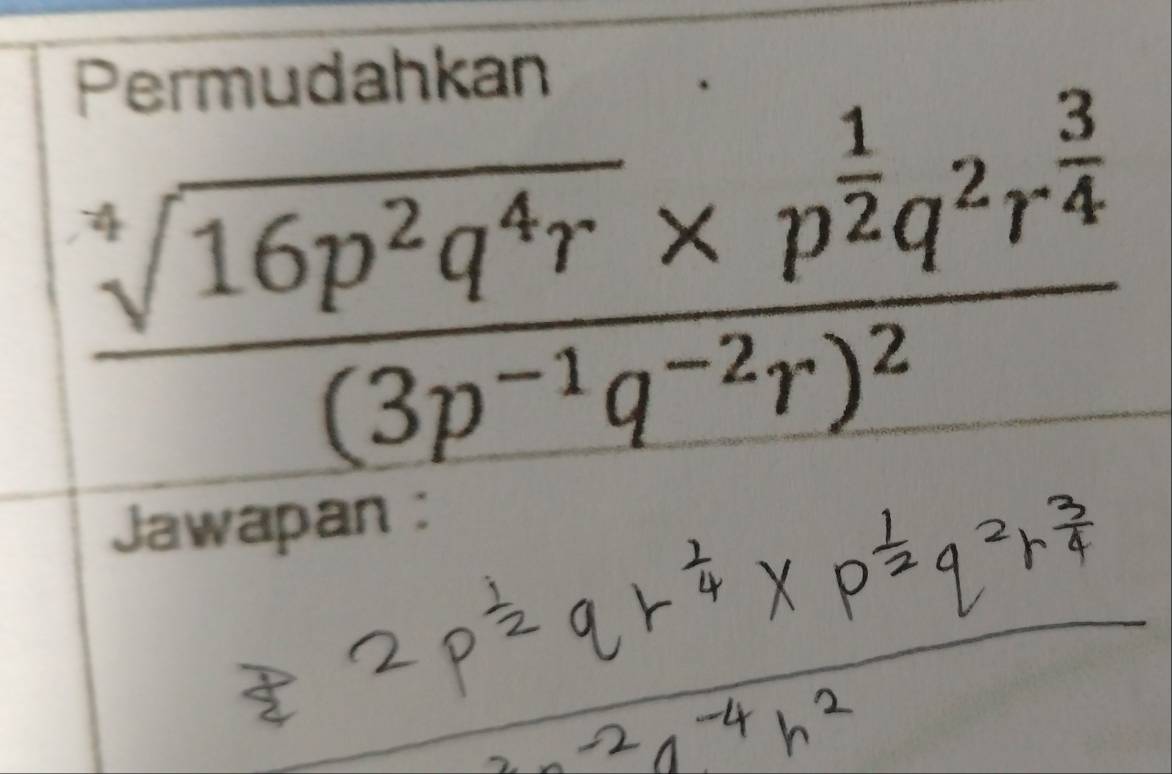 Permudahkan
⁴√(16p²q⁴r) × p^(1/2) q² r^(3/4)
(3p⁻¹q⁻²r)²
Jawapan :
2p^(1/2) q r^(1/4) × p^(1/2) q² r^(3/4)
⁻² q⁻⁴ r²